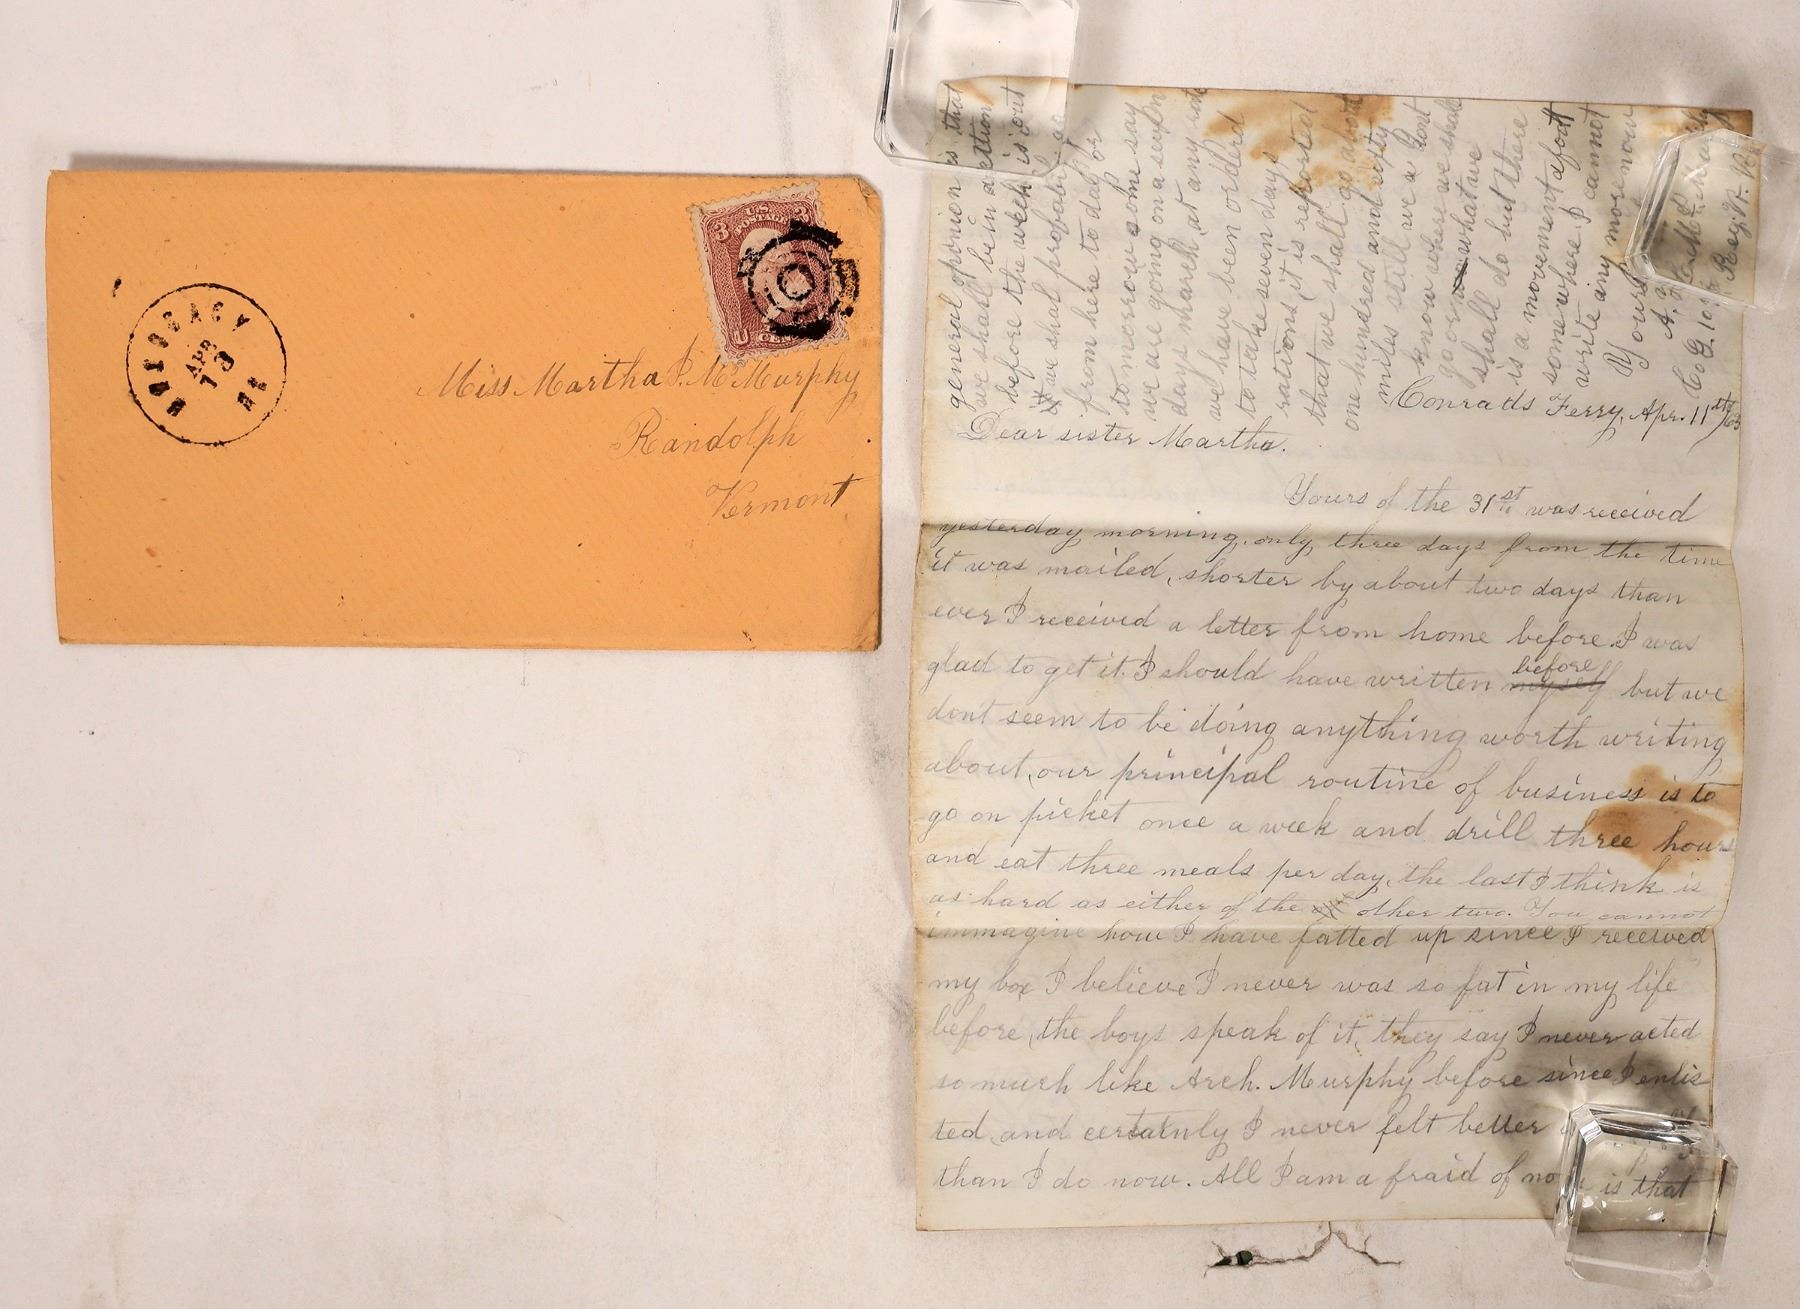 MONOCACY MD
APR 13
U.S. POSTAGE
3 3
Miss Martha P. McMurphy
Randolph
Vermont
general oppinion is that
we shall be in action
before the week is out
we shal probably go
from here to day or
tomorrow some say
we are going on a seven
days march, at any rate
we have been ordered
to take seven days
rations, it is reported
that we shall go about
one hundred and fifty
miles still we a dont
know where we shall
go or what we
shall do but there
is a movement afoot
some where. I cannot
write any more now
Yours
Co G. 10th Reg Vt. V
Conrads Ferry, Apr. 11th/63
Dear sister Martha.
Yours of the 31st was received
yesterday morning, only three days from the time
it was mailed, shorter by about two days than
ever I received a letter from home before. I was
glad to get it. I should have written before myself but we
dont seem to be doing anything worth writing
about, our principal routine of business is to
go on picket once a week and drill three hours
and eat three meals per day, the last I think is
as hard as either of the other two. You cannot
immagine how I have fatted up since I received
my box I believe I never was so fat in my life
before, the boys speak of it, they say I never acted
so much like Arch. Murphy before since I enlis
ted, and certainly I never felt better
than I do now. All I am a fraid of now is that